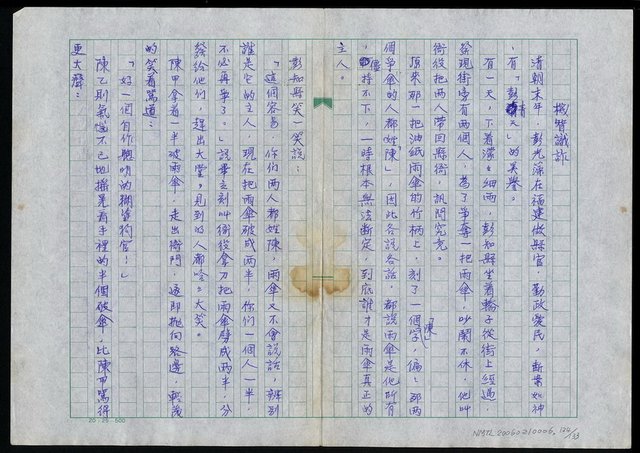 機智識詐
清朝末年,彭光藻在福建做縣官,勤政愛民,斷案如神
,有「彭青天」的美譽。
有一天,下着濛々細雨,彭知縣坐着轎子從街上經過,
發現街旁有兩個人,為了爭奪一把雨傘,吵鬧不休,他叫
衙役把兩人帶回縣衙,訊問究竟。
原來那一把油紙雨傘的竹柄上,刻了一個「陳」字,偏々那兩
個爭傘的人都姓「陳」,因此各說各話,都說雨傘是他所有
,僵持不下,一時根本無法斷定,到底誰才是雨傘真正的
主人。
彭知縣笑一笑說:
「這個容易,你們兩人都姓陳,雨傘又不會說話,辨別
誰是它的主人,現在把雨傘破成兩半,你們一個人一半,
不必再爭了。」說畢立刻叫衙役拿刀把雨傘劈成兩半,分
發給他們,趕出大堂。見到的人都哈々大笑。
陳甲拿着一半破雨傘,走出衙門,隨即拋向路邊,輕蔑
的笑着罵道:
「好一個自作聰明的糊塗狗官!」
陳乙則氣憤不已地搖晃着手裡的半個破傘,比陳甲罵得
更大聲:
25×25=500
NMTL20060210006, 132/133